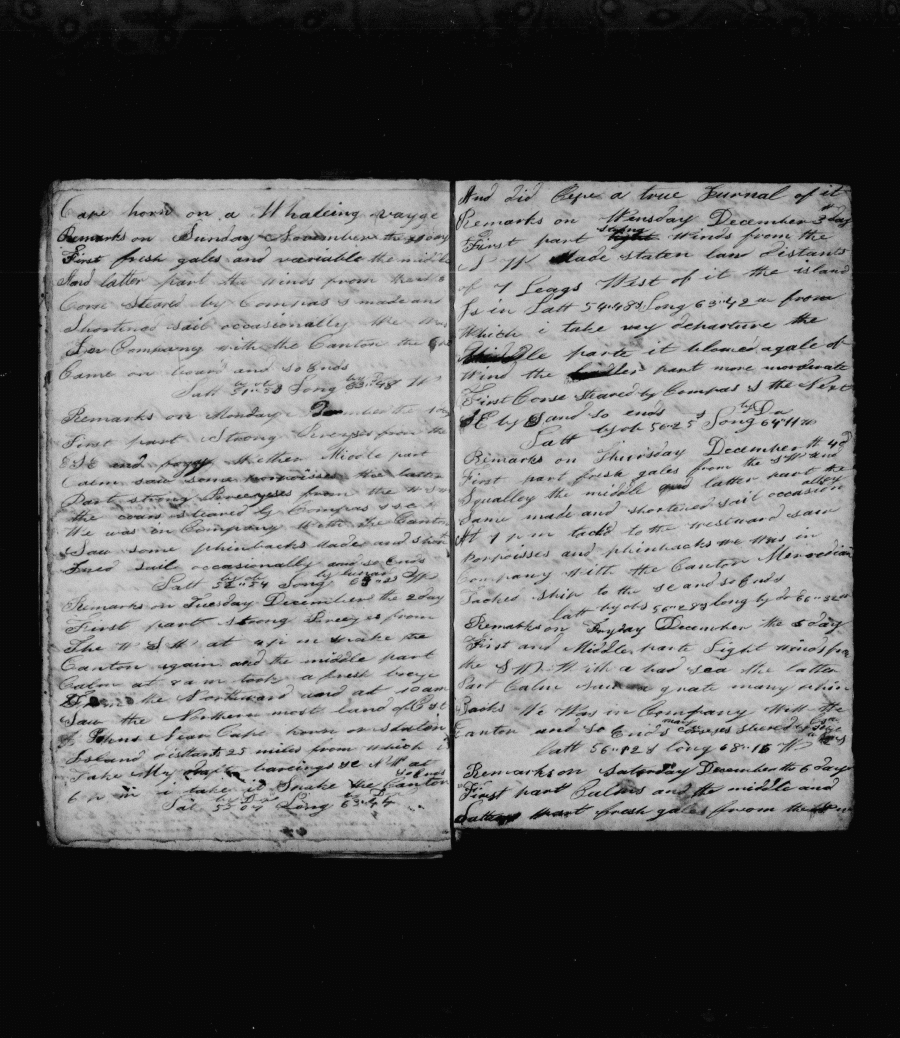 Cape horn on a Whaleing vayge
Remarks on Sunday November the 30 day
First fresh gales and variable the middle
And latter part the winds from the
Corse steard by Compas made and
Shortned sail occasionally We Was
In Company with the Canton the
Came on board and so Ends
Latt by ob Long by 63"48 W
Remarks on Monday December the 1 day
First part Strong Breezes from the
ESE and foggy Wether Middle part
Calm saw some porpoises the latter
Part strong Breeyses from the WSW
the cours steared by Compas
We was in Company With the Canton
Saw some phinbacks Made and short
Fned sail occasionally and so Ends
Latt by ob 54 Long by lunar W
Remarks on Tuesday December the 2 day
First part strong Breezes from
The W S W at 4 p m spake the
Canton again and the middle part
Calm at 8 a m took a fresh breeze
From the Northward and at 10 am
Saw the Northern most land of
St Johns Near Cape horn or Staten
Island distant 25 miles from which i
Take My bearings SE at
6 p m i take it Spake the Canton
so Ends
Lat by Long 63"44
And did Cepe a true Jurnal of it
Remarks on Wensday December 3d day
First part strong Winds from the
S W Made staten lan distants
of 7 Leags West of it the island
Is in Latt 54"48 S Long 63"42 w from
Which i take my departure the
Middle parte it blowed a gale of
Wind the latter part more moderate
First Corse steared by Compas S the Next
SE by S and so ends
Latt by ob 56"25 S Long by Do 64"11 W
Remarks on Thursday December th 4d
First part fresh gales from the SW and
Squalley the middle and latter part the
Same made and shortened sail occasion
alley
At 1 p m tackd to the westward saw
Porpoisses and phinbacks We Was in
Company With the Canton Merredian
Tacked ship to the se and so Ends
latt by obs 56"28 S long by dr 66"32 w
Remarks on Fryday December the 5 day
First and Middle parte Light Winds fro
the S W With a bad sea the latter
Part Calm Saw a grate many phin
Backs We Was in Company With the
Canton and so Ends Corses steared
Latt 56"12 S long 68"16 W
Remarks on Saturday December th 6 day
First part Calms and the middle and
Latter part fresh gales from the